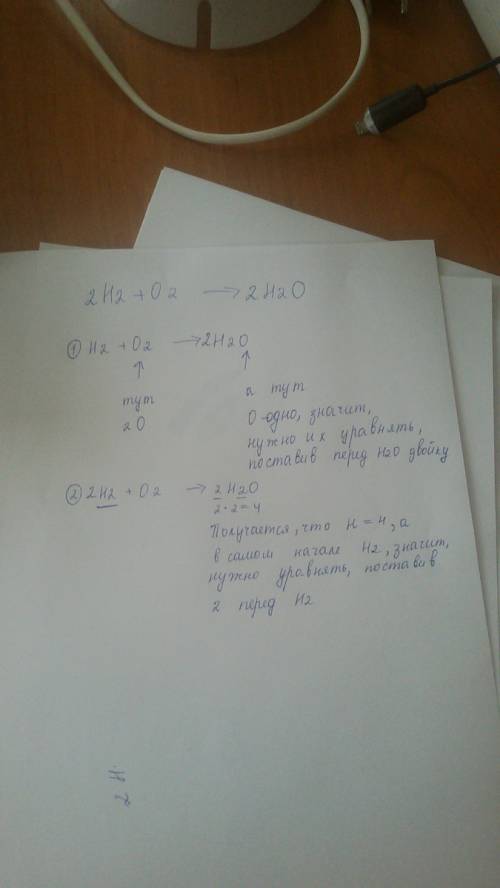 2H2 + O2 → 2H2O
① H2 + O2 → 2H2O
↑ ↑
тут а тут
2O O одно, значит,
нужно их уравнять,
поставив перед H2O двойку
② 2H2 + O2 → 2H2O
2·2=4
Получается, что H = 4, а
в самом начале H2, значит,
нужно уравнять, поставив
2 перед H2
2 H